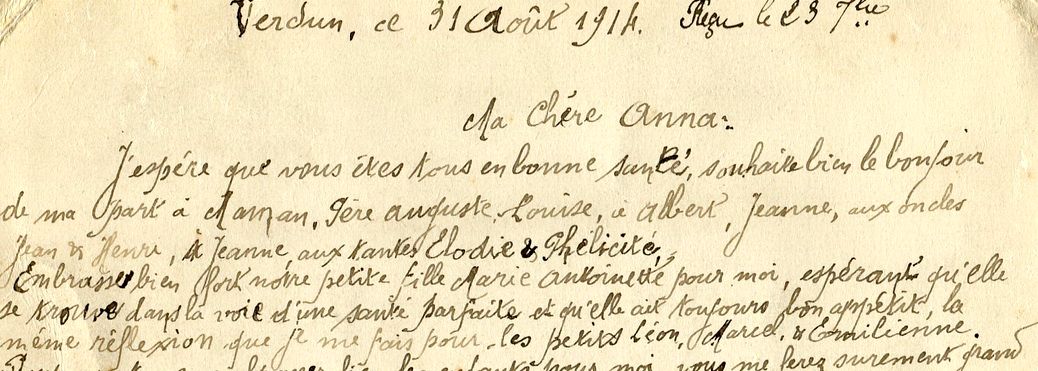 Verdun, ce 31 Août 1914. Reçu le 23 7bre
Ma Chère Anna:
J'espére que vous êtes tous en bonne santé, souhaite bien le bonjour
de ma part à Maman, Père Auguste, Louise, à Albert, Jeanne, aux oncles
Jean & Henri, à Jeanne, aux tantes Elodie & Phélicité,
Embrasse bien fort notre petite fille Marie Antoinette pour moi, espérant qu'elle
se trouve dans la voie d'une santé parfaite et qu'elle ait toujours bon appétit, la
même réflexion que je me fais pour les petits Léon, Marcel, & Emilienne.
les enfants pour moi, vous me ferez surement grand